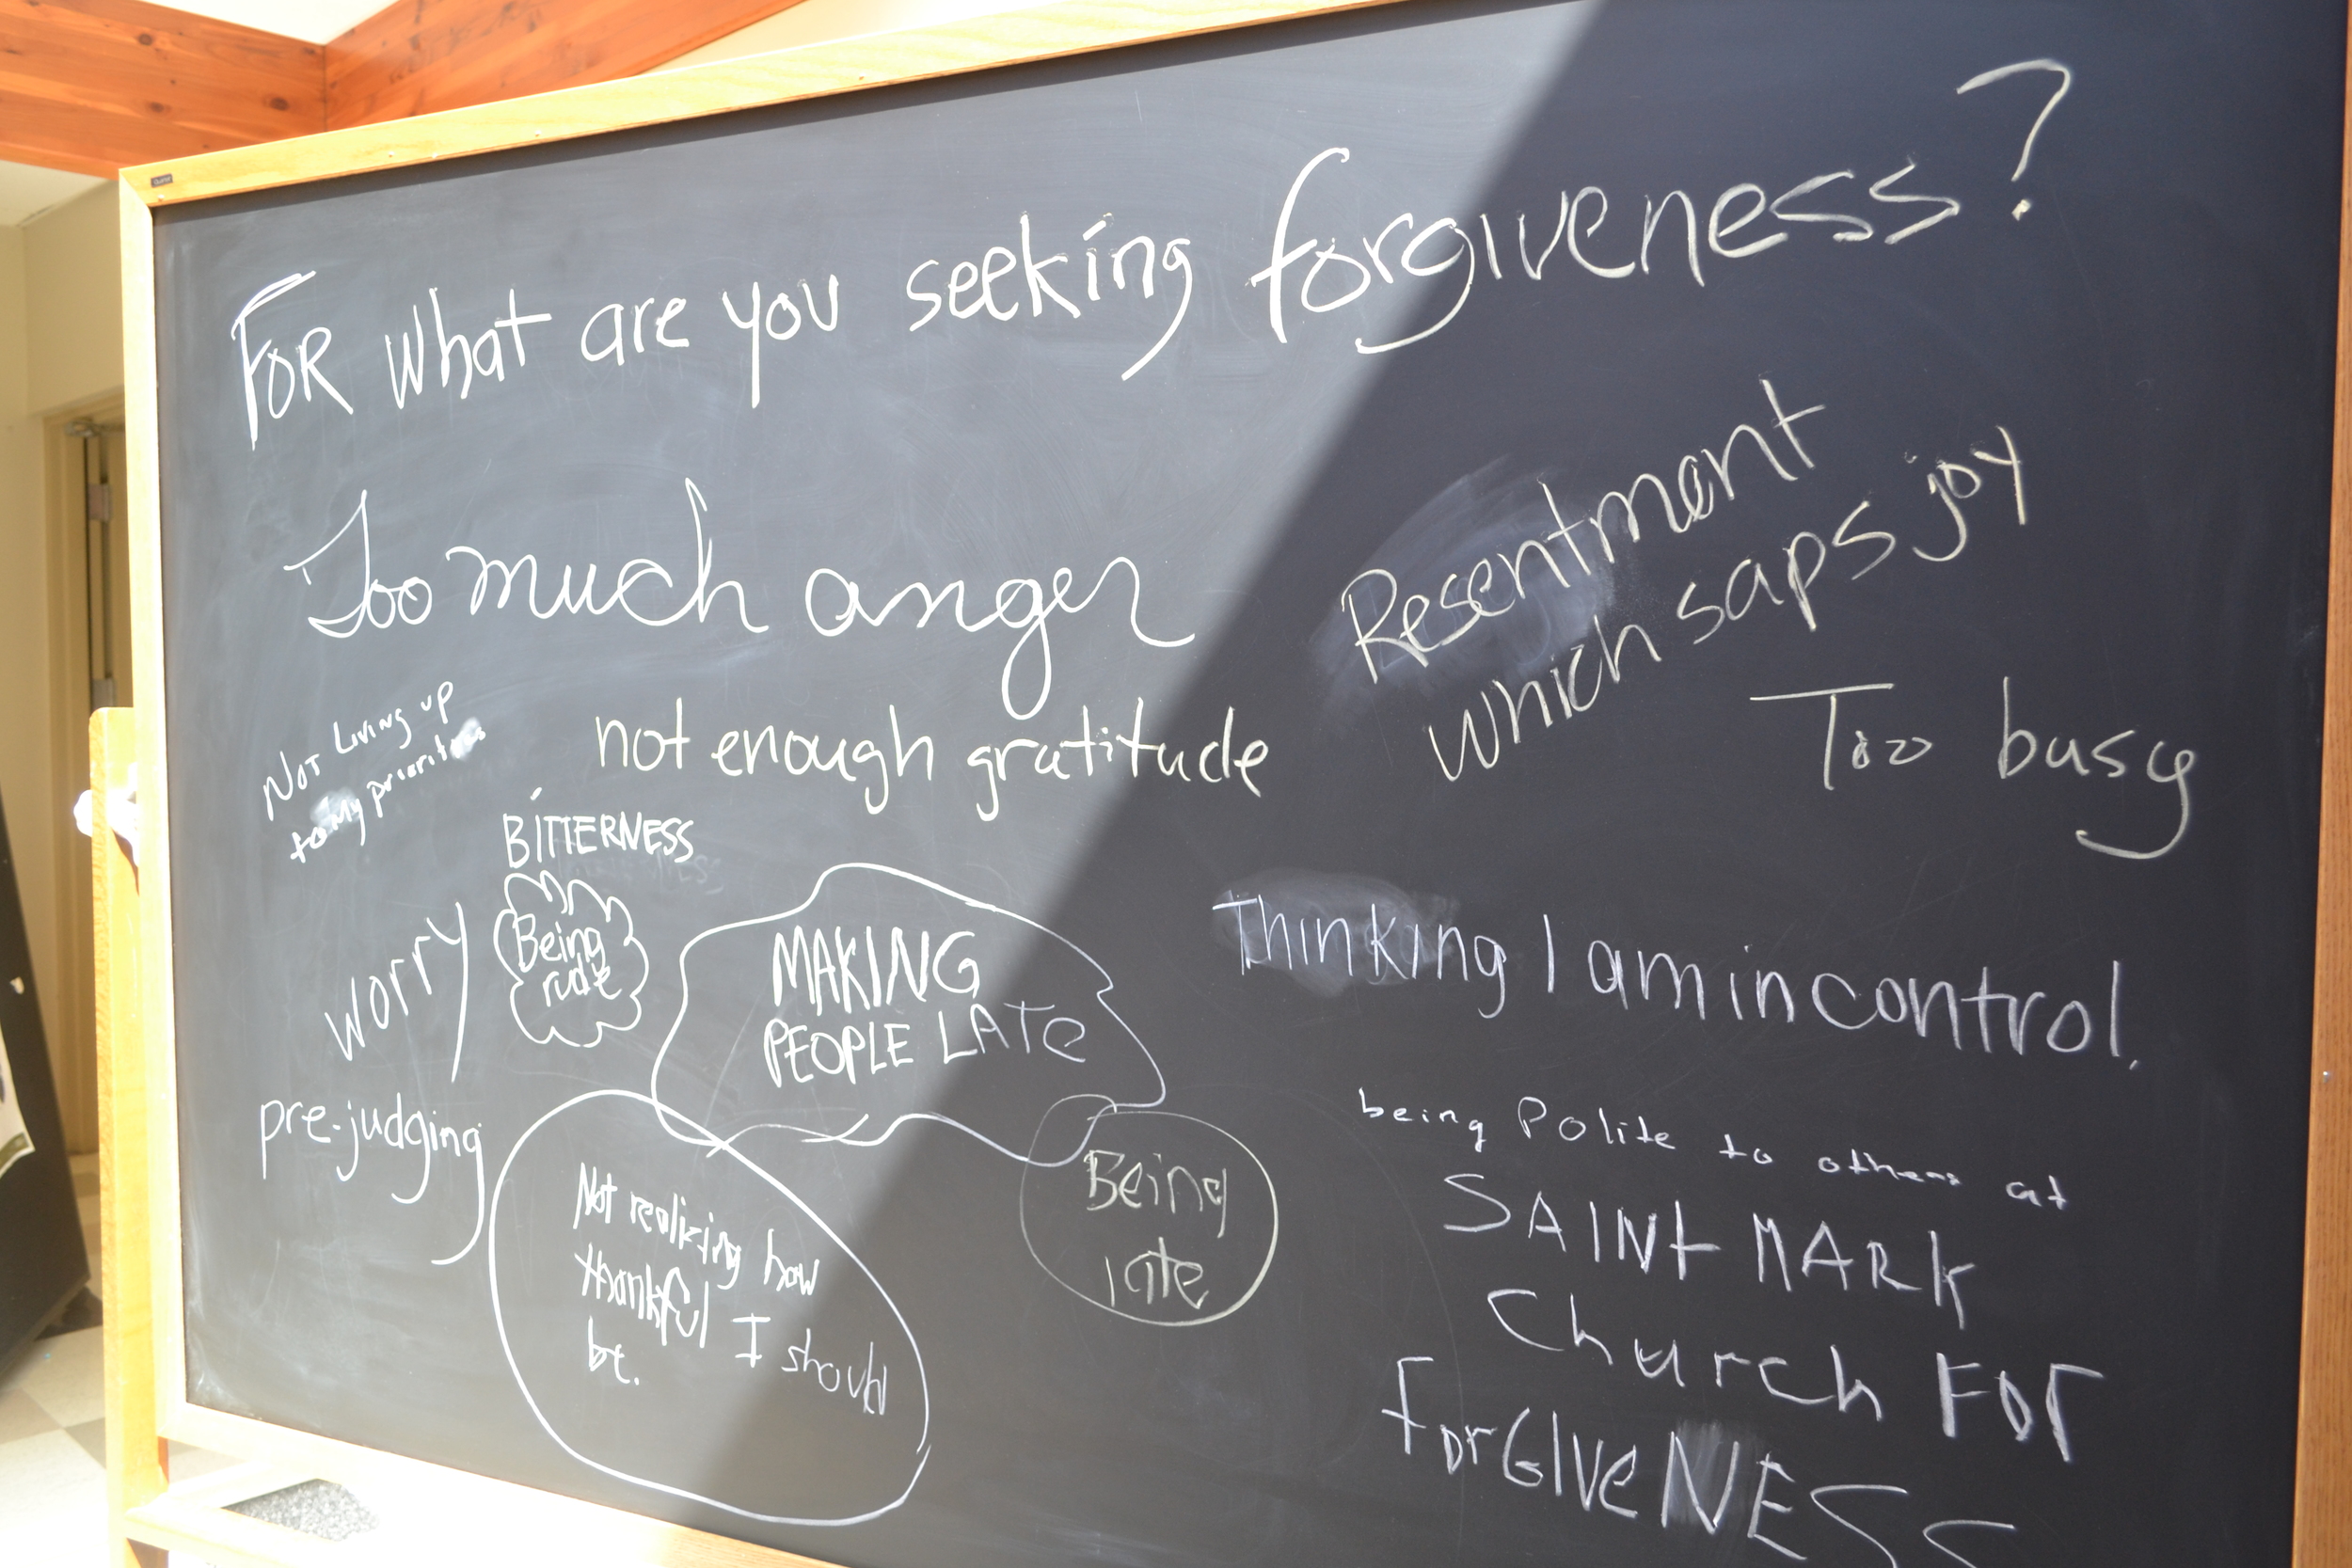 For what are you seeking forgiveness?
Too much anger
Resentment
which saps joy
Not Living up
to My priorities
not enough gratitude
Too busy
BITTERNESS
Being
rude
worry
MAKING
PEOPLE LATE
Thinking I am in control.
pre-judging
Not realizing how
thankful I should
be.
Being
late
being Polite to others at
SAINt MARk
Church For
ForGIVeNESS